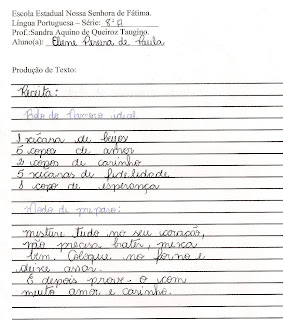 Escola Estadual Nossa Senhora de Fátima.
Língua Portuguesa – Série: 8ª A
Prof.:Sandra Aquino de Queiroz Taugino.
Aluno(a): Eliene Pereira de Paula
Produção de Texto:
Receita:
Bolo do Namoro ideal
1 xícara de beijos
5 copos de amor
2 copos de carinho
5 xícaras de fidelidade
1 copo de esperança
Modo de preparo:
misture tudo no seu coração,
não precisa bater, mexa
bem. Coloque no forno e
deixe assar.
E depois prove-o com
muito amor e carinho.